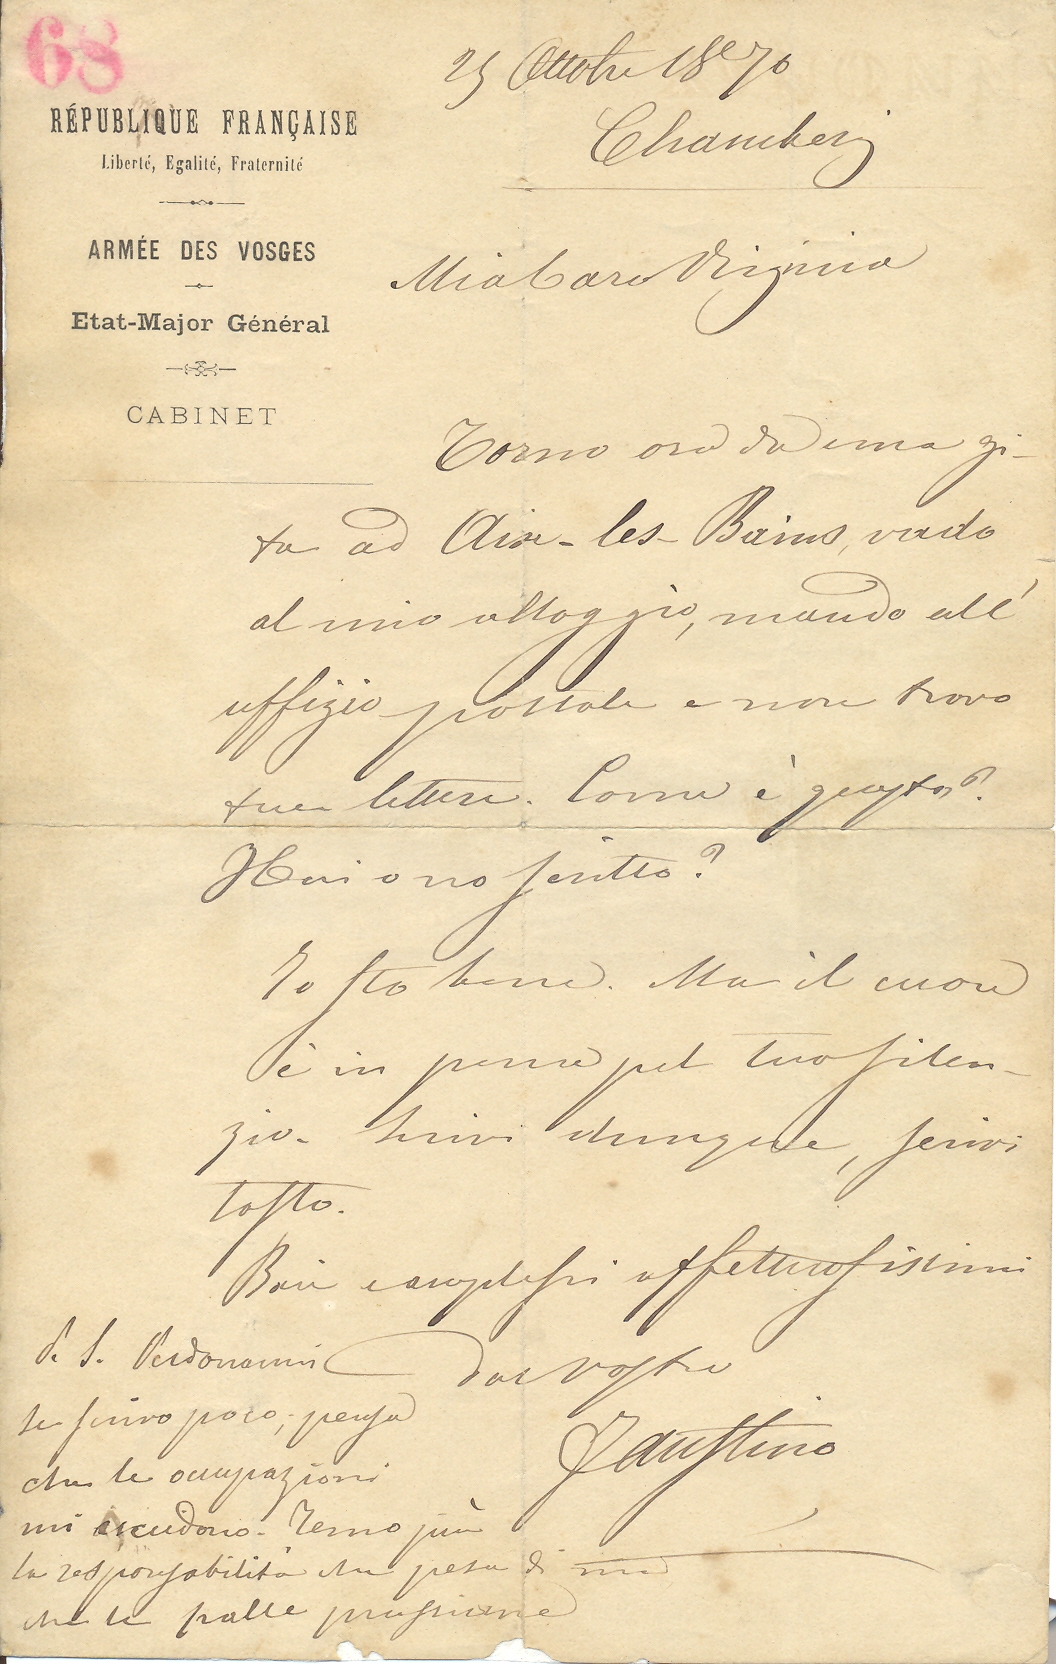 68
RÉPUBLIQUE FRANÇAISE
Liberté, Egalité, Fraternité
ARMÉE DES VOSGES
Etat-Major Général
CABINET
25 Ottobre 1870
Chambery
Mia Cara Virginia
Torno ora da una gi-
ta ad Aix-les-Bains, vado
al mio alloggio, mando all'
uffizio postale e non trovo
tue lettere. Come è questo?
Hai o no scritto?
Io sto bene. Ma il cuore
è in pena pel tuo silen-
zio. Scrivi dunque, scrivi
tosto.
Baci e amplessi affettuosissimi
dal vostro
Faustino
P. S. Perdonami
se scrivo poco; pensa
che le occupazioni
mi uccidono. Temo più
la responsabilità che pesa di me
che le palle prussiane